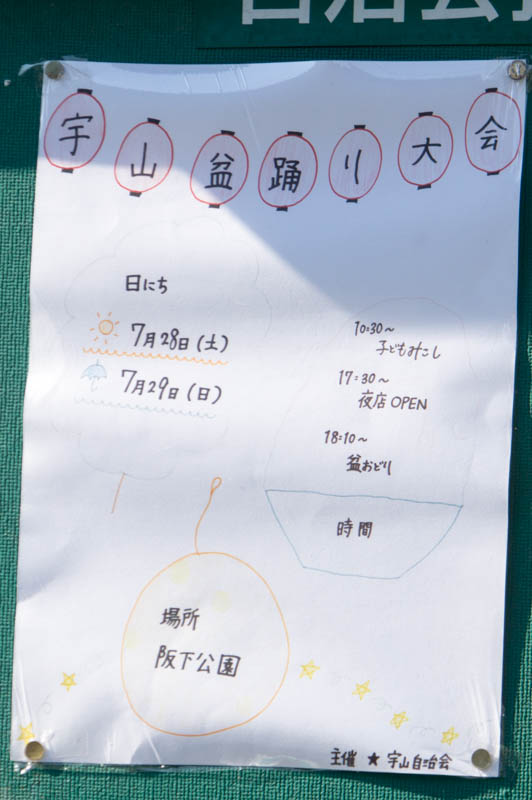 宇山盆踊り大会
日にち
7月28日(土)
7月29日(日)
10:30~
子どもみこし
17:30~
夜店 OPEN
18:10~
盆おどり
時間
場所
阪下公園
主催 ★ 宇山自治会